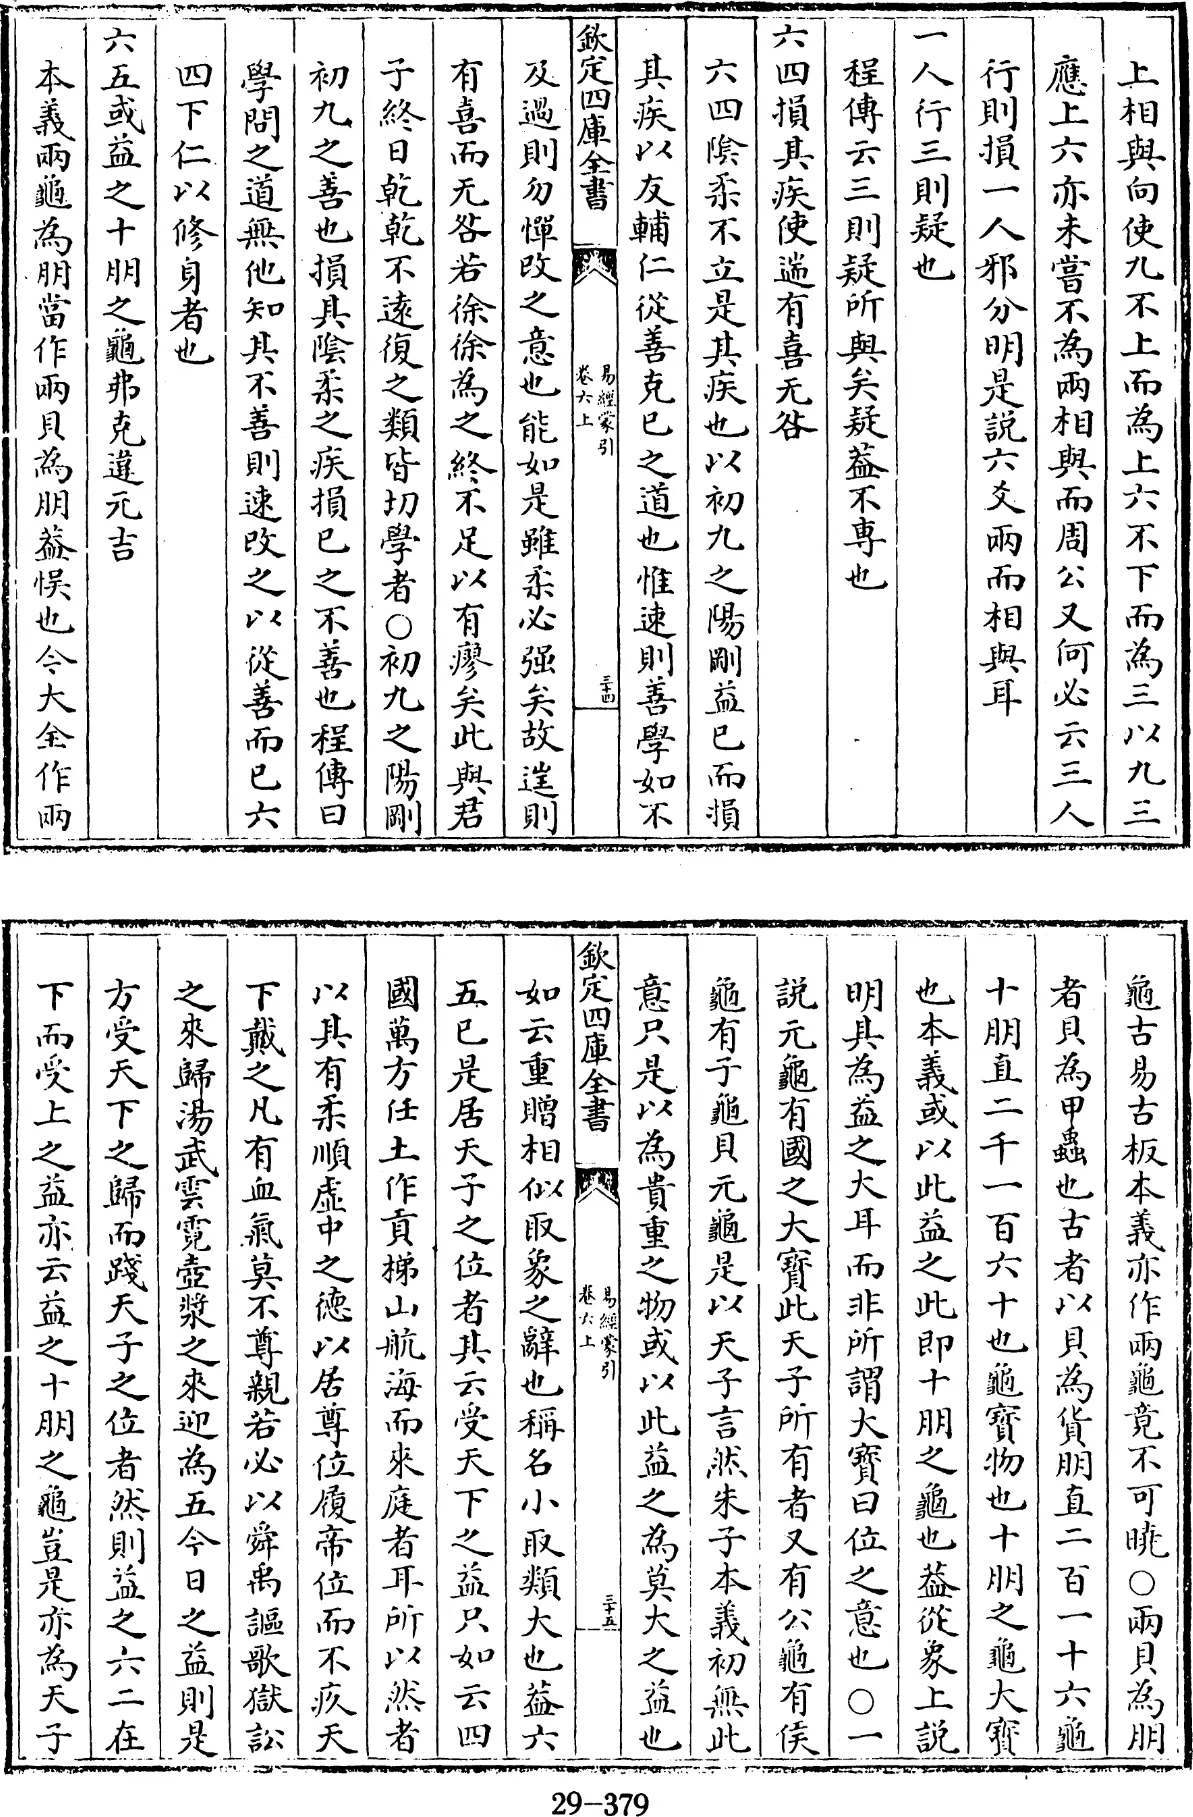 上相與向使九不上而為上六不下而為三以九三
應上六亦未嘗不為兩相與而周公又何必云三人
行則損一人邪分明是説六爻兩而相與耳
一人行三則疑也
程傳云三則疑所與矣疑葢不専也
六四損其疾使遄有喜无咎
六四隂柔不立是其疾也以初九之陽剛益已而損
其疾以友輔仁從善克已之道也惟速則善學如不
欽定四庫全書
易經蒙引
卷六上
三十四
及過則勿憚改之意也能如是雖柔必强矣故遄則
有喜而无咎若徐徐為之終不足以有瘳矣此與君
子終日乾乾不逺復之類皆切學者○初九之陽剛
初九之善也損其陰柔之疾損已之不善也程傳曰
學問之道無他知其不善則速改之以從善而已六
四下仁以修身者也
六五或益之十朋之龜弗克違元吉
本義兩龜為朋當作兩貝為朋葢悞也今大全作兩
龜古易古板本義亦作兩龜竟不可曉○兩貝為朋
者貝為甲蟲也古者以貝為貨朋直二百一十六龜
十朋直二千一百六十也龜寳物也十朋之龜大寳
也本義或以此益之此即十朋之龜也葢從象上説
明其為益之大耳而非所謂大寳曰位之意也○一
説元龜有國之大寳此天子所有者又有公龜有侯
龜有子龜貝元龜是以天子言然朱子本義初無此
意只是以為貴重之物或以此益之為莫大之益也
欽定四庫全書
易經蒙引
卷六上
三十五
如云重贈相似取象之辭也稱名小取類大也葢六
五已是居天子之位者其云受天下之益只如云四
國萬方任土作貢梯山航海而來庭者耳所以然者
以其有柔順虛中之德以居尊位履帝位而不疚天
下戴之凡有血氣莫不尊親若必以舜禹謳歌獄訟
之來歸湯武雲霓壺漿之來迎為五今日之益則是
方受天下之歸而踐天子之位者然則益之六二在
下而受上之益亦云益之十朋之龜豈是亦為天子
29-379